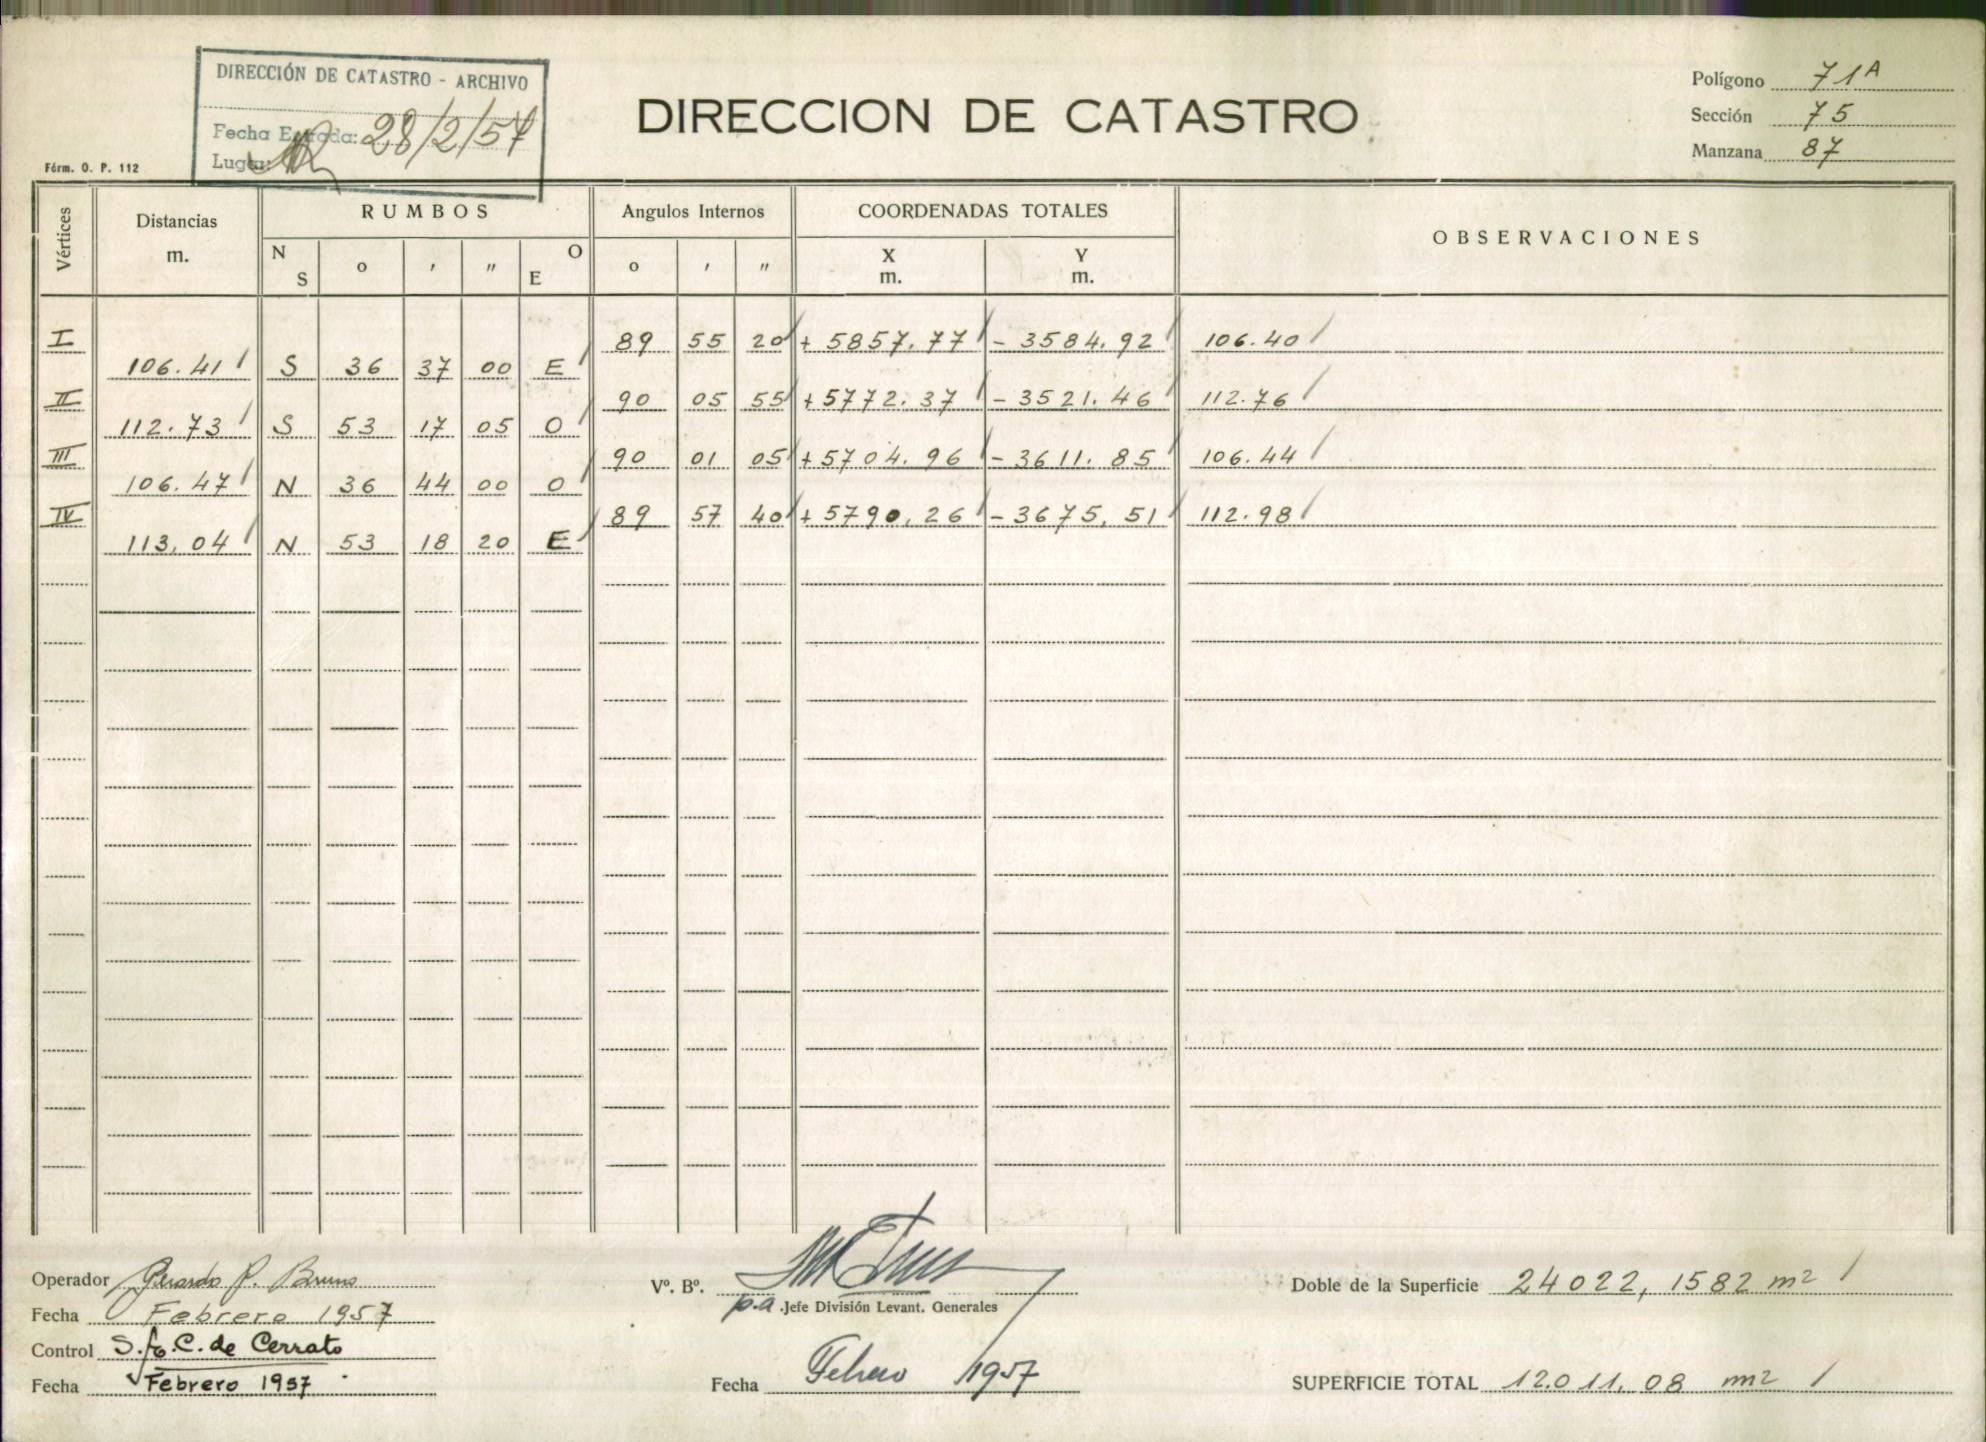 DIRECCIÓN DE CATASTRO - ARCHIVO
Fecha Entrada: 28/2/57
Lugar:
DIRECCION DE CATASTRO
Polígono 71A
Sección 75
Manzana 87
Fórm. O. P. 112
Vértices Distancias m. RUMBOS Angulos Internos COORDENADAS TOTALES OBSERVACIONES
N S o ' " O E o ' " X m. Y m.
I 89 55 20 + 5857.77 - 3584.92 106.40
106.41 S 36 37 00 E
II 90 05 55 + 5772.37 - 3521.46 112.76
112.73 S 53 17 05 O
III 90 01 05 + 5704.96 - 3611.85 106.44
106.47 N 36 44 00 O
IV 89 57 40 + 5790,26 - 3675,51 112.98
113,04 N 53 18 20 E
Operador Gerardo P. Bruno
Fecha Febrero 1957
Control S. C. de Cerrato
Fecha Febrero 1957
Vº. Bº.
p.a. Jefe División Levant. Generales
Fecha Febrero 1957
Doble de la Superficie 24022,1582 m2
SUPERFICIE TOTAL 12.011.08 m2